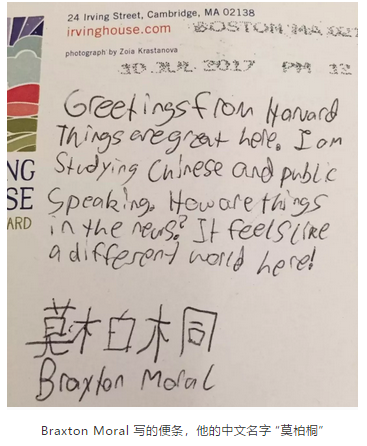 24 Irving Street, Cambridge, MA 02138
irvinghouse.com
BOSTON MA 021
photograph by Zoia Krastanova
30 JUL 2017 PM 12
Greetings from Harvard
Things are great here. I am
Studying Chinese and public
Speaking. How are things
in the news? It feels like
a different world here!
NG
SE
ARD
莫木白木同
Braxton Moral
Braxton Moral 写的便条，他的中文名字 “莫柏桐”